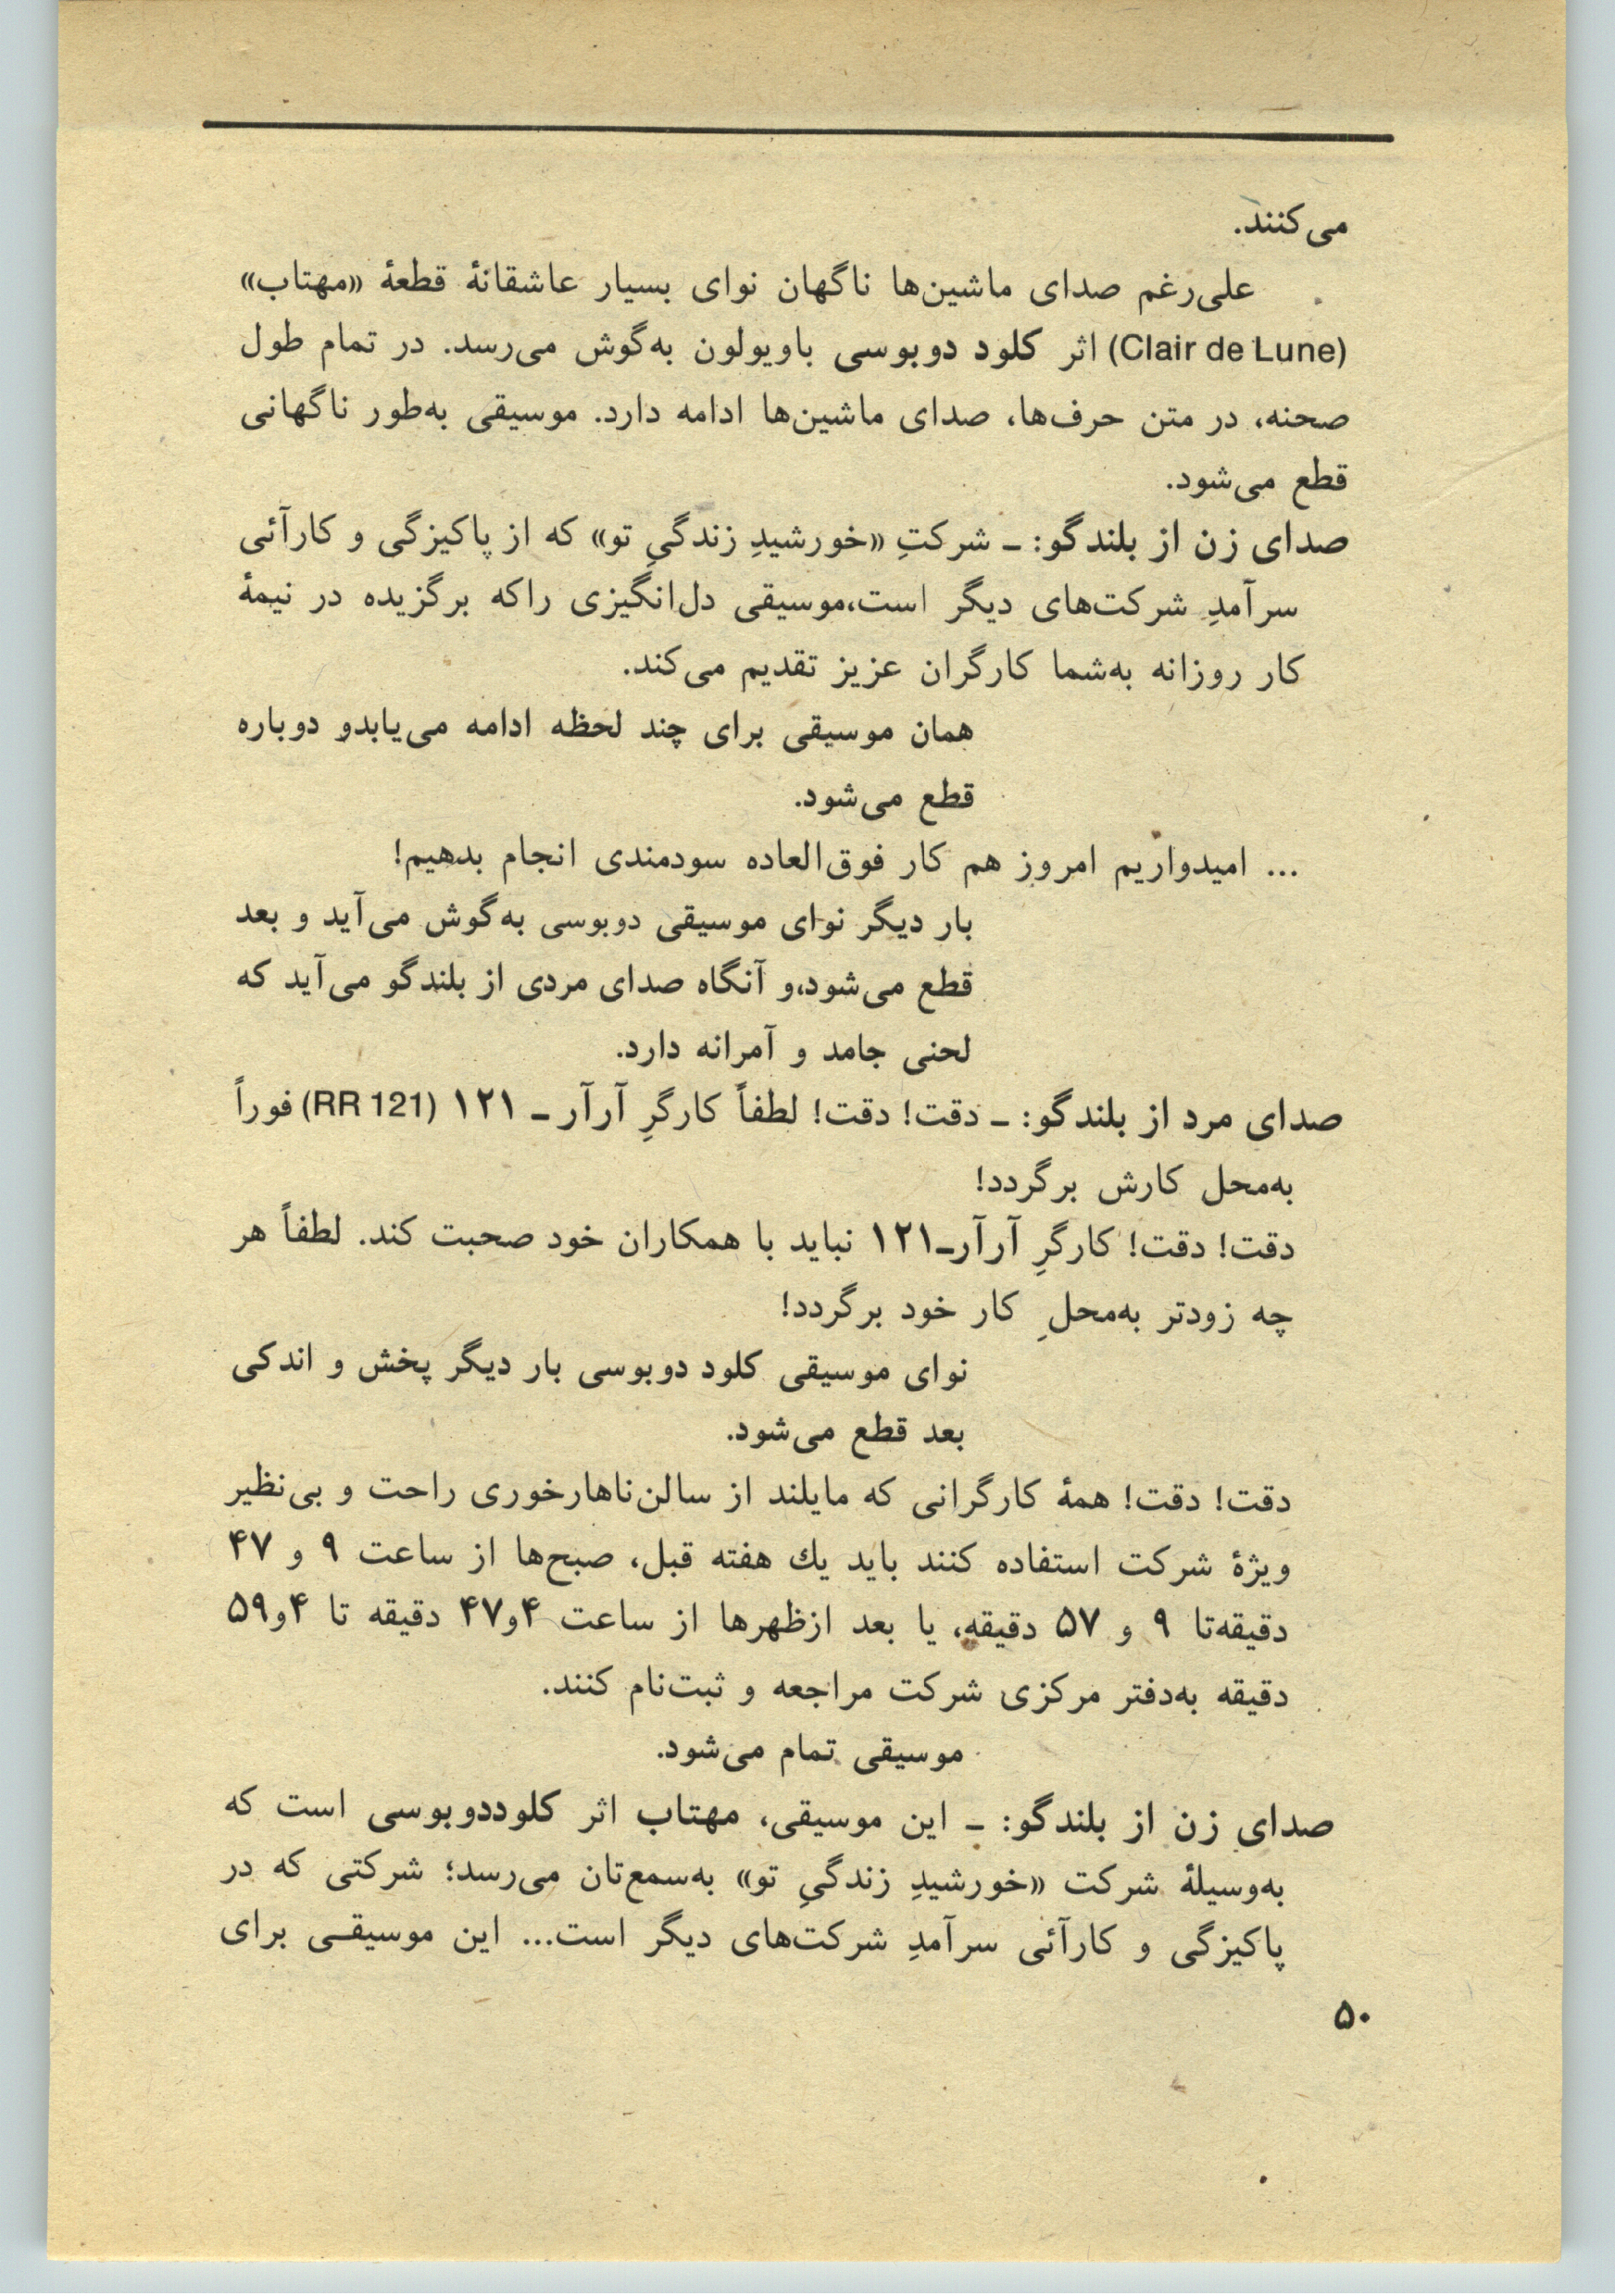 می‌کنند.
علی‌رغم صدای ماشین‌ها ناگهان نوای بسیار عاشقانهٔ قطعهٔ «مهتاب»
(Clair de Lune) اثر کلود دوبوسی باویولون به‌گوش می‌رسد. در تمام طول
صحنه، در متن حرف‌ها، صدای ماشین‌ها ادامه دارد. موسیقی به‌طور ناگهانی
قطع می‌شود.
صدای زن از بلندگو: ـ شرکتِ «خورشیدِ زندگیِ تو» که از پاکیزگی و کارآئی
سرآمدِ شرکت‌های دیگر است،موسیقی دل‌انگیزی راکه برگزیده در نیمهٔ
کار روزانه به‌شما کارگران عزیز تقدیم می‌کند.
همان موسیقی برای چند لحظه ادامه می‌یابدو دوباره
قطع می‌شود.
... امیدواریم امروز هم کار فوق‌العاده سودمندی انجام بدهیم!
بار دیگر نوای موسیقی دوبوسی به‌گوش می‌آید و بعد
قطع می‌شود،و آنگاه صدای مردی از بلندگو می‌آید که
لحنی جامد و آمرانه دارد.
صدای مرد از بلندگو: ـ دقت! دقت! لطفاً کارگرِ آرآر ـ ۱۲۱ (RR 121) فوراً
به‌محل کارش برگردد!
دقت! دقت! کارگرِ آرآرـ۱۲۱ نباید با همکاران خود صحبت کند. لطفاً هر
چه زودتر به‌محلِ کار خود برگردد!
نوای موسیقی کلود دوبوسی بار دیگر پخش و اندکی
بعد قطع می‌شود.
دقت! دقت! همهٔ کارگرانی که مایلند از سالن‌ناهارخوری راحت و بی‌نظیر
ویژهٔ شرکت استفاده کنند باید یك هفته قبل، صبح‌ها از ساعت ۹ و ۴۷
دقیقه‌تا ۹ و ۵۷ دقیقه، یا بعد ازظهرها از ساعت ۴و۴۷ دقیقه تا ۴و۵۹
دقیقه به‌دفتر مرکزی شرکت مراجعه و ثبت‌نام کنند.
موسیقی تمام می‌شود.
صدای زن از بلندگو: ـ این موسیقی، مهتاب اثر کلوددوبوسی است که
به‌وسیلهٔ شرکت «خورشیدِ زندگیِ تو» به‌سمع‌تان می‌رسد؛ شرکتی که در
پاکیزگی و کارآئی سرآمدِ شرکت‌های دیگر است... این موسیقـی برای
۵۰